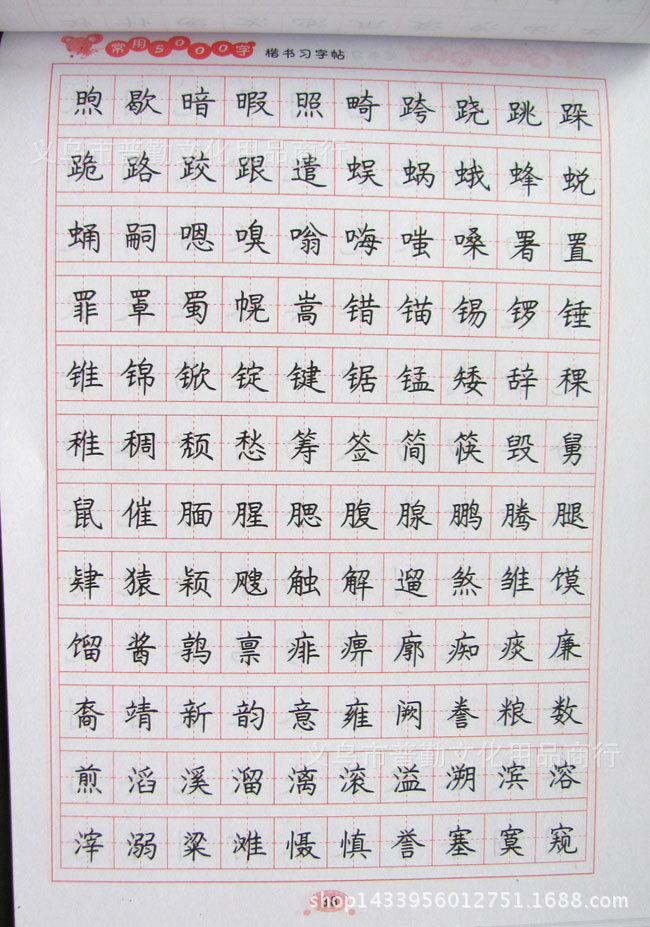 常用5000字 楷书习字帖
煦歇暗暇照畸跨跷跳跺
跪路跤跟遣蜈蜗蛾蜂蜕
蛹嗣嗯嗅嗡嗨嗤嗓署置
罪罩蜀幌嵩错锚锡锣锤
锥锦锨锭键锯锰矮辞稞
稚稠颓愁筹签简筷毁舅
鼠催腼腥腮腹腺鹏腾腿
肄猿颖飕触解遛煞雏馍
馏酱鹑禀痱痹廓痴痰廉
裔靖新韵意雍阙誊粮数
煎滔溪溜漓滚溢溯滨溶
滓溺粱滩慑慎誉塞寞窥
义乌市普勤文化用品商行
义乌市普勤文化用品商行
shop1433956012751.1688.com